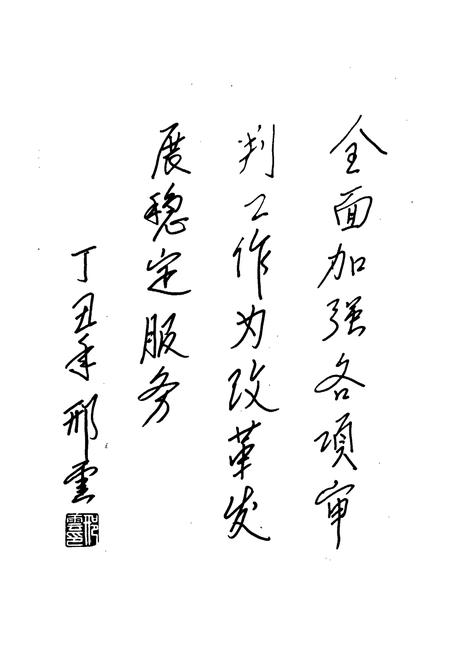 全面加强各项审
判工作为改革发
展稳定服务
丁丑年邢雲